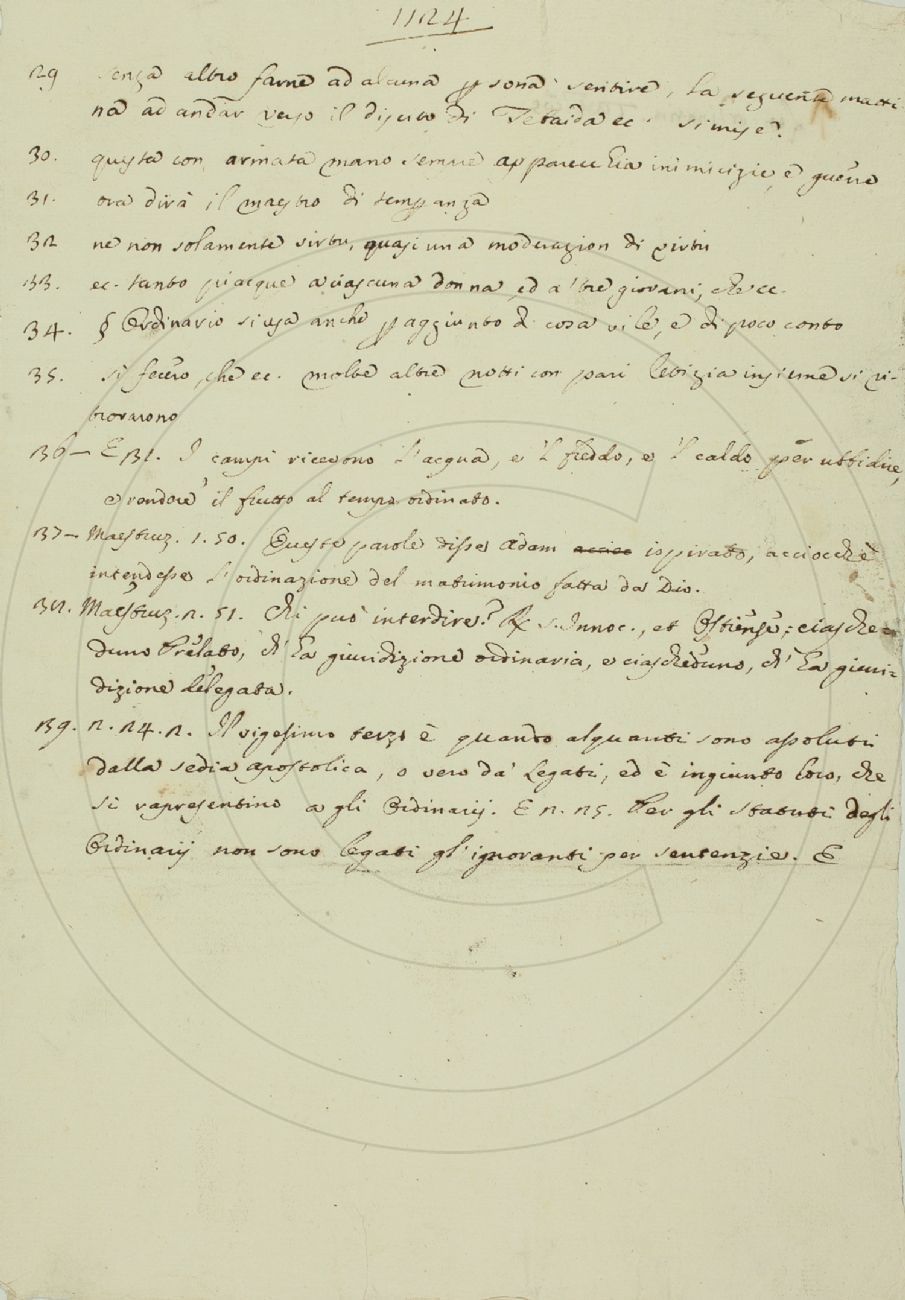 1124
29 senza altro farne ad alcuna p sona sentire, la seguente matti
na ad andar verso il diserto di Tebaida ec. si mise.
30. questa con armata mano sempre apparecchia inimicizie, e guerre
31. ora dirà il maestro di temp anza
32 ne non solamente virtu, quasi una moderazion di virtu
33. ec. tanto piacque a ciascuna donna ed a' tre giovani, che ec.
34. § Ordinario si usa anche p aggiunto di cosa vile, e di poco conto
35. si fecero, che ec. molte altre notti con pari letizia insieme si ri-
trovarono
36 — E 131. I campi ricevono l'acqua, e 'l freddo, e 'l caldo per ubbidire,
e rendere il frutto al tempo ordinato.
37 — Maestruz. 1. 50. Queste parole disse Adam ispirato, acciocchè
intendesse l'ordinazione del matrimonio fatta da Dio.
38. Maestruz. 2. 51. Chi può interdire? R s. Innoc., et Ostiense; ciasche-
duno Prelato, ch' ha giuridizione ordinaria, e ciascheduno, ch' ha giuri-
dizione delegata.
39. 2. 24. 2. Il vigesimo terzo è quando alquanti sono assoluti
dalla sedia apostolica, o vero da' Legati, ed è ingiunto loro, che
si rapresentino a gli Ordinarij. E 2. 25. Per gli statuti degli
Ordinarij non sono legati gl'ignoranti per sentenzie. E